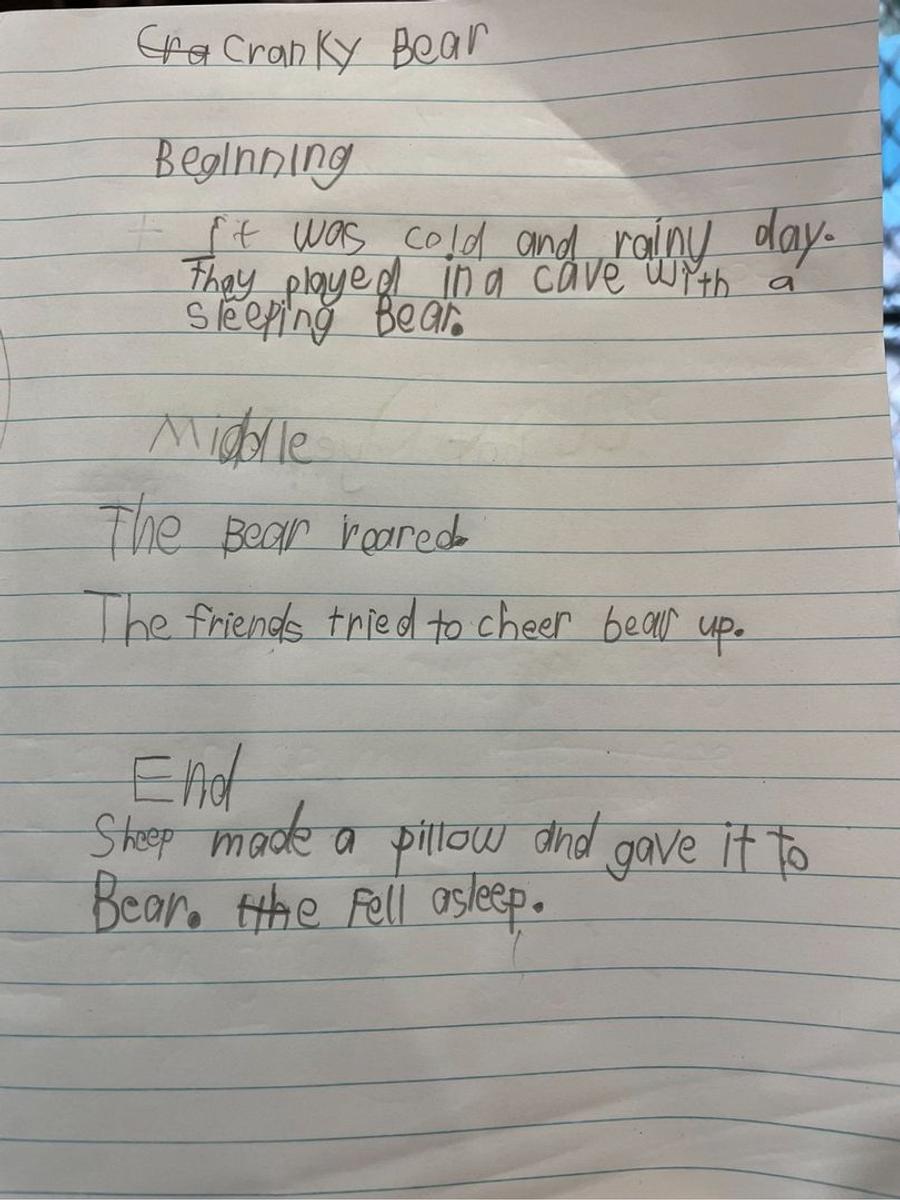 Cra Cranky Bear
Beginning
It was cold and rainy day.
They played in a cave with a
sleeping Bear.
Middle
The Bear roared.
The friends tried to cheer bear up.
End
Sheep made a pillow and gave it to
Bear. He fell asleep.